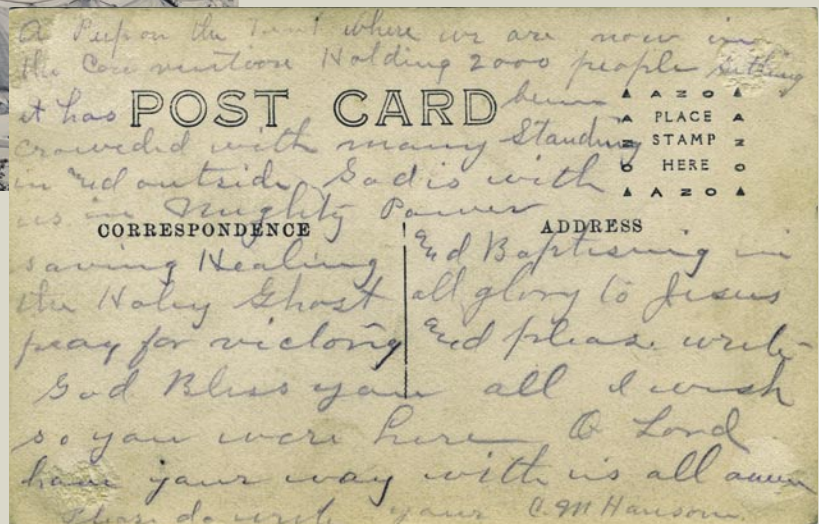 A Peep on the Tent where we are now in
the Convention Holding 2000 people sitting
it has been
POST CARD
AZO
PLACE
STAMP
HERE
AZO
crowded with many Standing
in end outside God is with
us in Mighty Power
CORRESPONDENCE
ADDRESS
saving Healing End Baptising in
the Holey Ghost all glory to Jesus
pray for victory End please write
God Bless you all I wish
so you were here O Lord
have your way with us all amen
Please do write your C. M Hanson